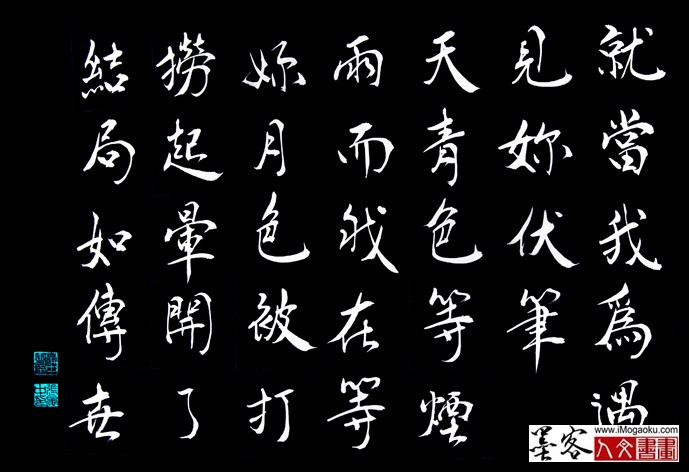 就當我為遇
見妳伏筆
天青色等煙
雨而我在等
妳月色被打
撈起暈開了
結局如傳世
墨客
www.iMogaoku.com
人文書畫